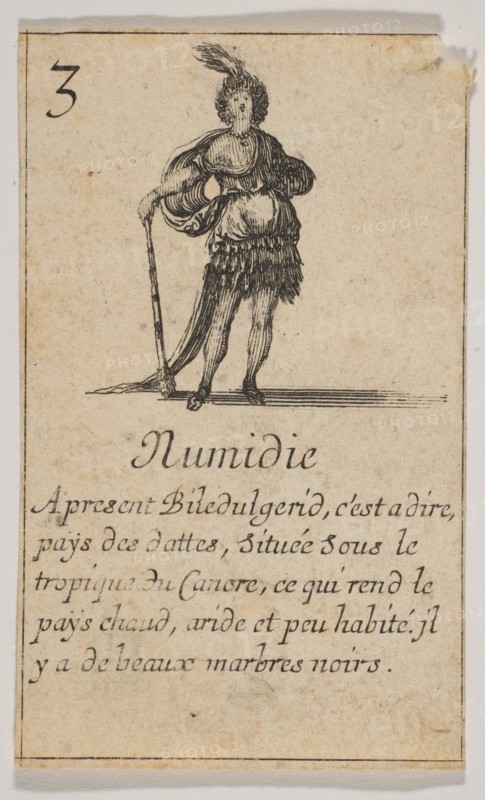 3
Numidie
A present Biledulgerid, c'est a dire,
païs des dattes, située sous le
tropique du Cancre, ce qui rend le
païs chaud, aride et peu habité. jl
y a de beaux marbres noirs.